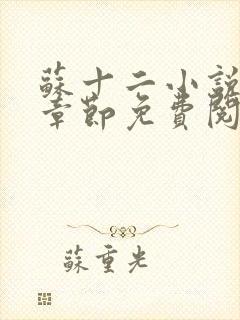 蘇十二小說
章節免費閱
蘇重光